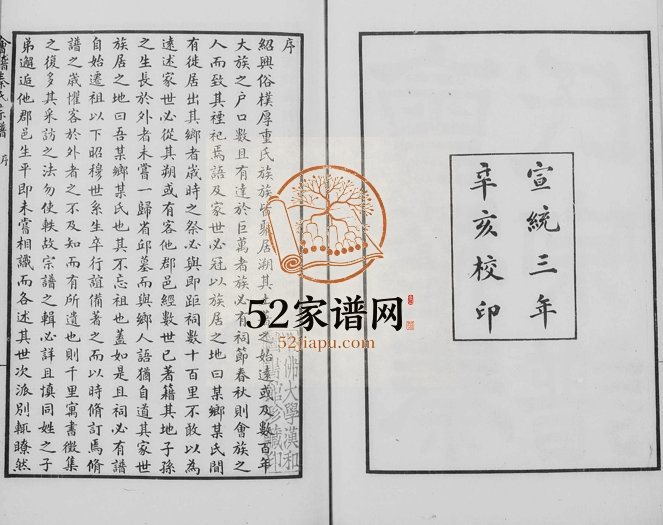 宣統三年
辛亥校印
序
紹興俗樸厚重氏族族皆聚居溯其 之始遠或及數百年
大族之户口數且有達於巨萬者族必有祠節春秋則會族之
人而致其禋祀焉語及家世必冠以族居之地曰某鄉某氏間
有徙居出其鄉者歲時之祭必與即距祠數十百里不敢以為
遠述家世必從其朔或有客他郡邑經數世已著籍其地子孫
之生長於外者未嘗一歸省邱墓而與鄉人語猶自道其家世
族居之地曰吾某鄉某氏也其不忘祖也蓋如是且祠必有譜
自始遷祖以下昭穆世系生卒行誼備著之而以時脩訂焉脩
譜之歲懼客於外者之不及知而有所遺也則千里寓書徵集
之復多其采訪之法勿使軼故宗譜之輯必詳且慎同姓之子
弟邂逅他郡邑生平即未嘗相識而各述其世次派別輒瞭然
會稽秦氏宗譜 序
52家谱网
52jiapu.com
佛大學漢和
圖書館珍藏印